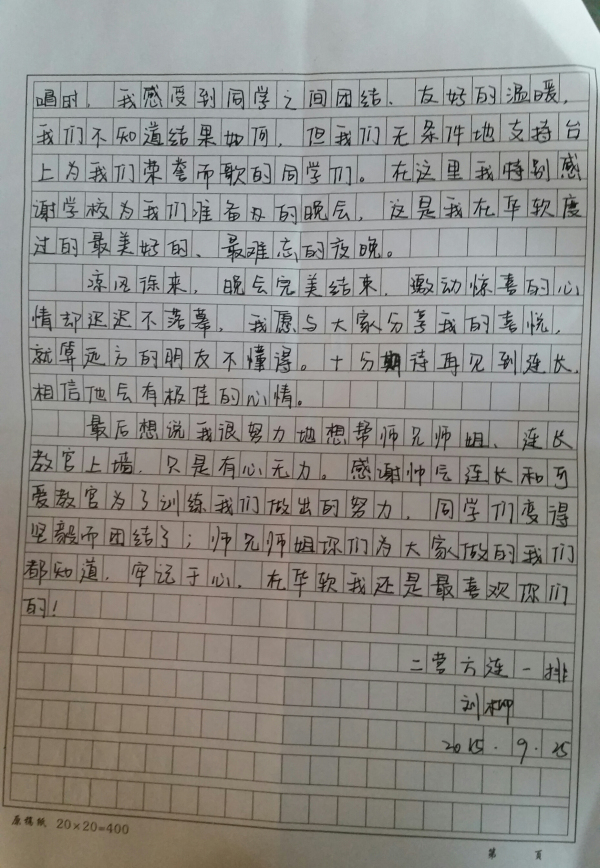 唱时，我感受到同学之间团结、友好的温暖，
我们不知道结果如何，但我们无条件地支持台
上为我们荣誉而歌的同学们。在这里我特别感
谢学校为我们准备的晚会，这是我在华软度
过的最美好的、最难忘的夜晚。
凉风徐来，晚会完美结束，激动惊喜的心
情却迟迟不落幕，我愿与大家分享我的喜悦，
就算远方的朋友不懂得。十分期待再见到连长，
相信他会有极佳的心情。
最后想说我很努力地想帮师兄师姐、连长
教官上墙，只是有心无力。感谢帅气连长和可
爱教官为了训练我们做出的努力，同学们变得
坚毅而团结了；师兄师姐你们为大家做的我们
都知道，牢记于心，在华软我还是最喜欢你们
的！
二营六连一排
刘柳
2015.9.25
原稿纸 20×20=400
第 页